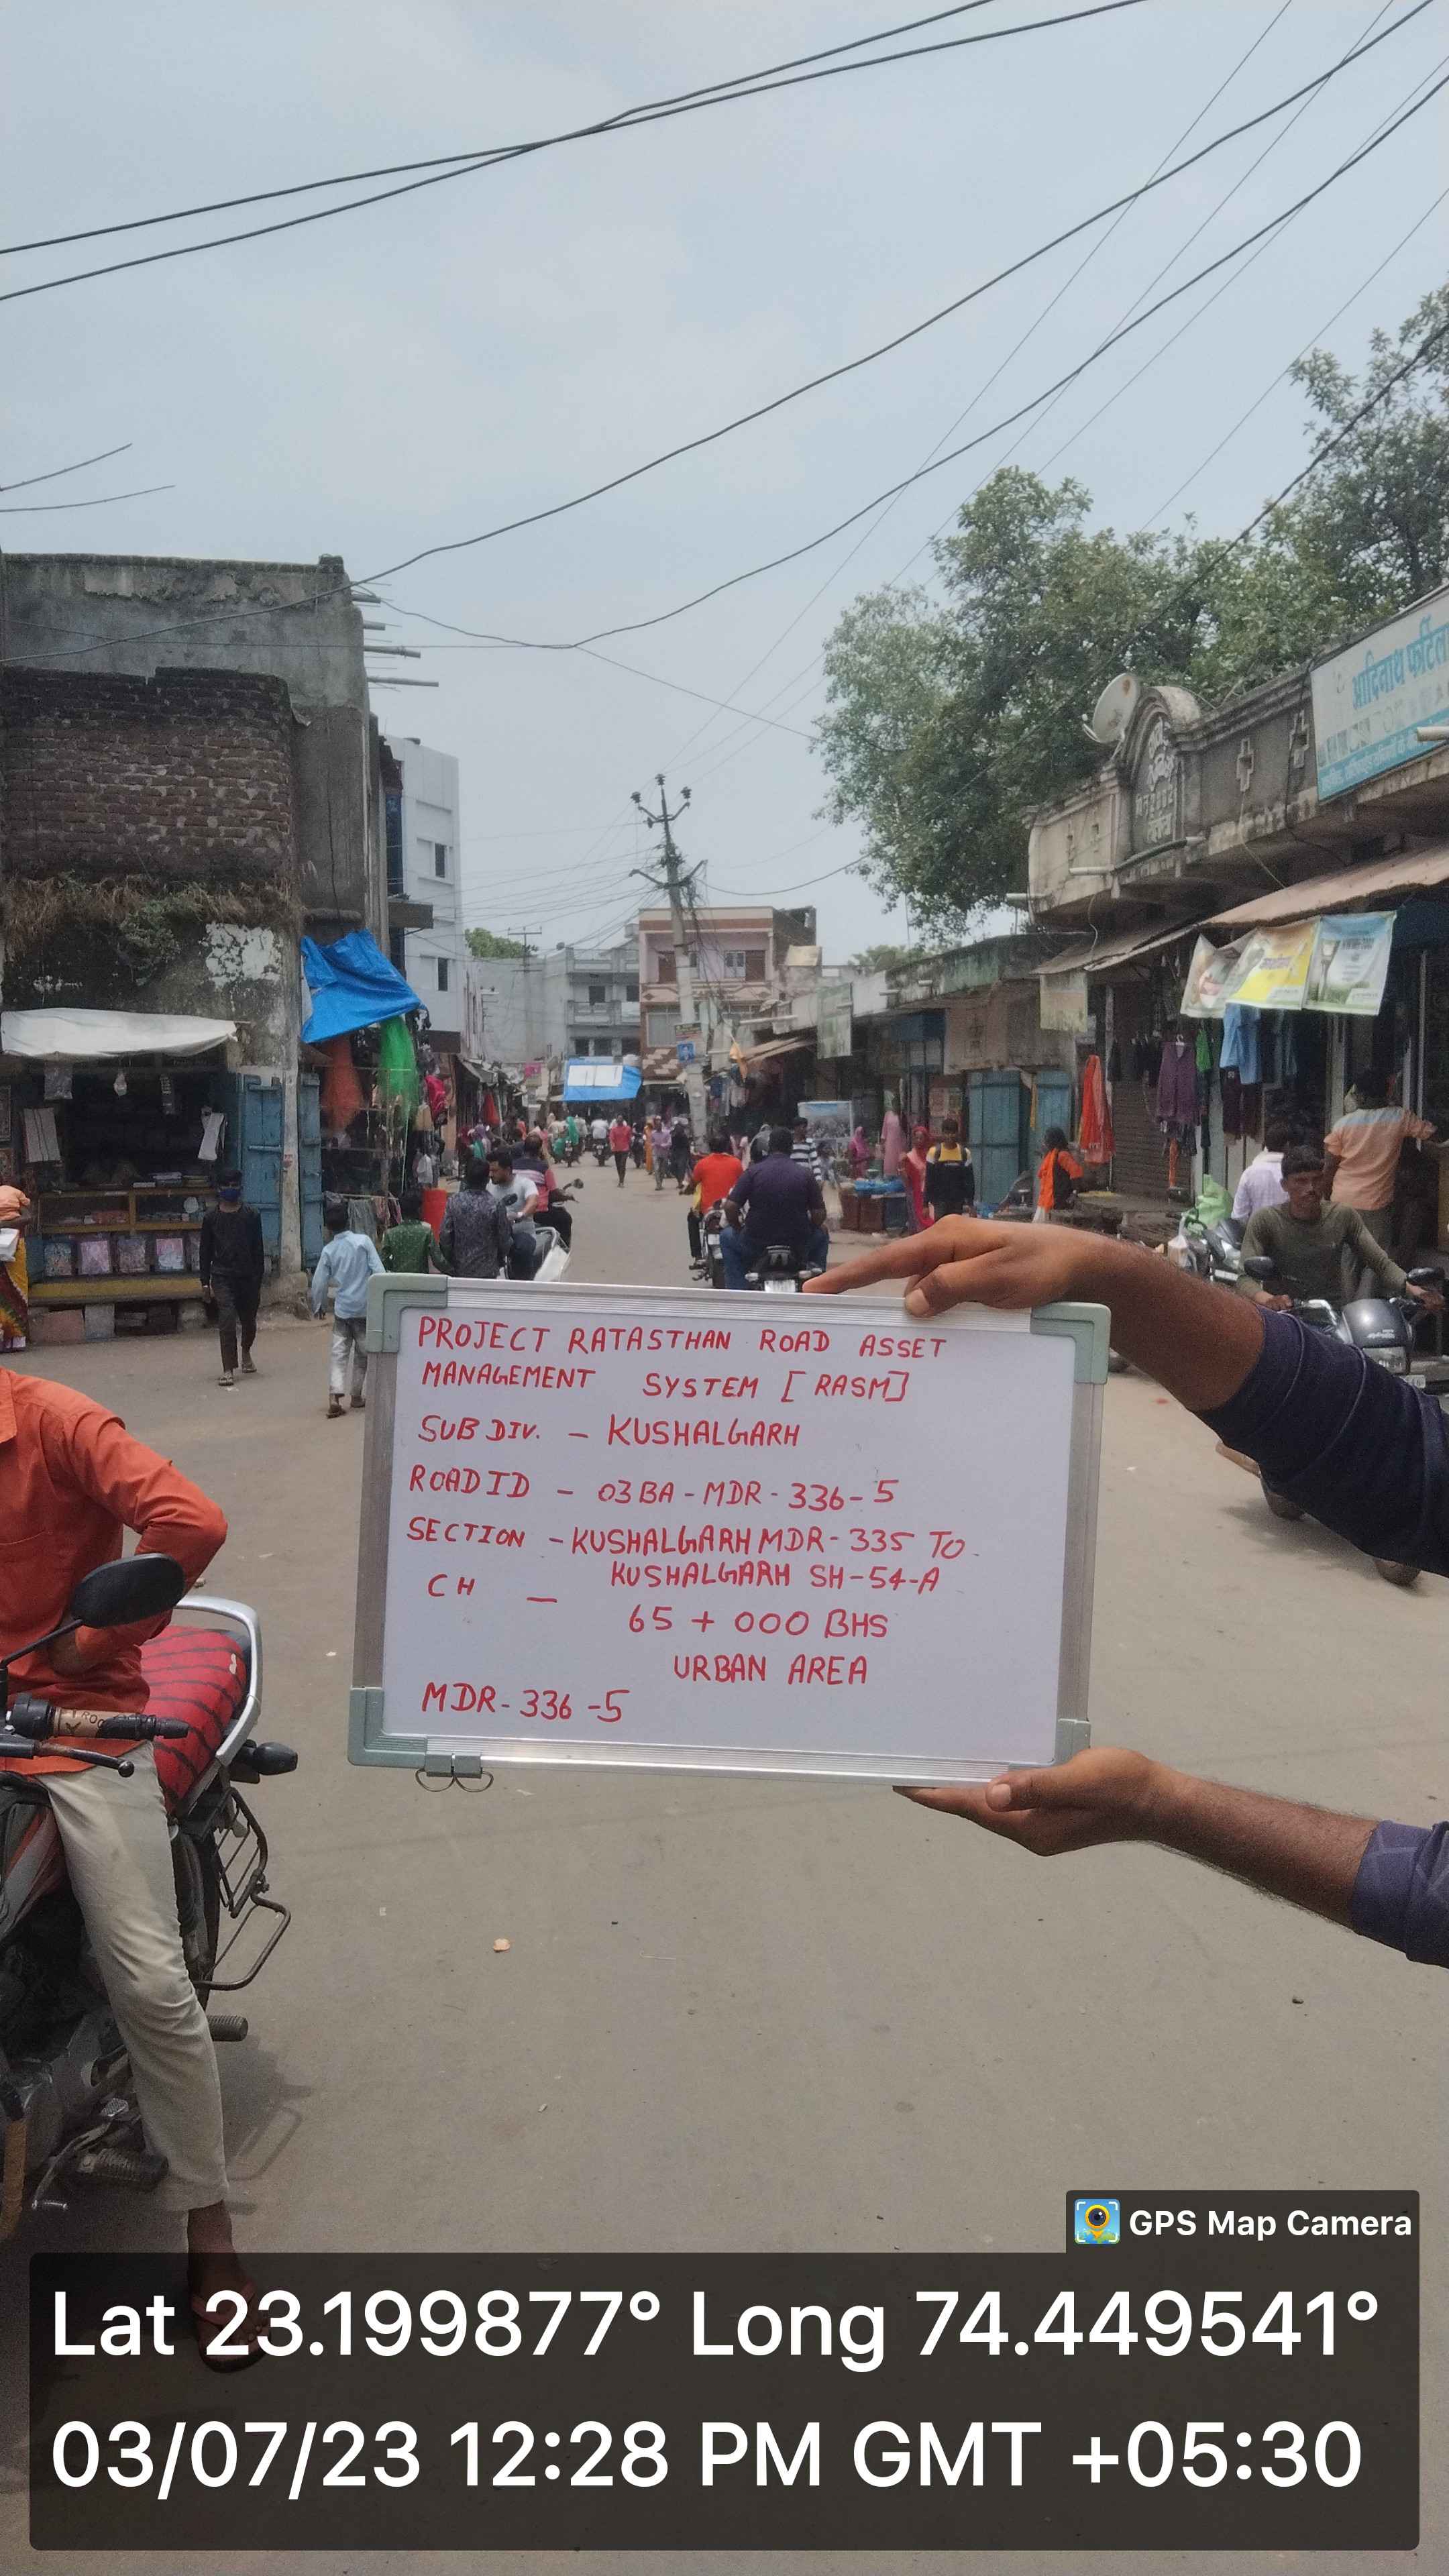 आदिनाथ
PROJECT RATASTHAN ROAD ASSET
MANAGEMENT SYSTEM [RASM]
SUB DIV. - KUSHALGARH
ROAD ID - 03BA-MDR-336-5
SECTION - KUSHALGARH MDR-335 TO
KUSHALGARH SH-54-A
CH - 65+000 BHS
URBAN AREA
MDR-336-5
GPS Map Camera
Lat 23.199877° Long 74.449541°
03/07/23 12:28 PM GMT +05:30